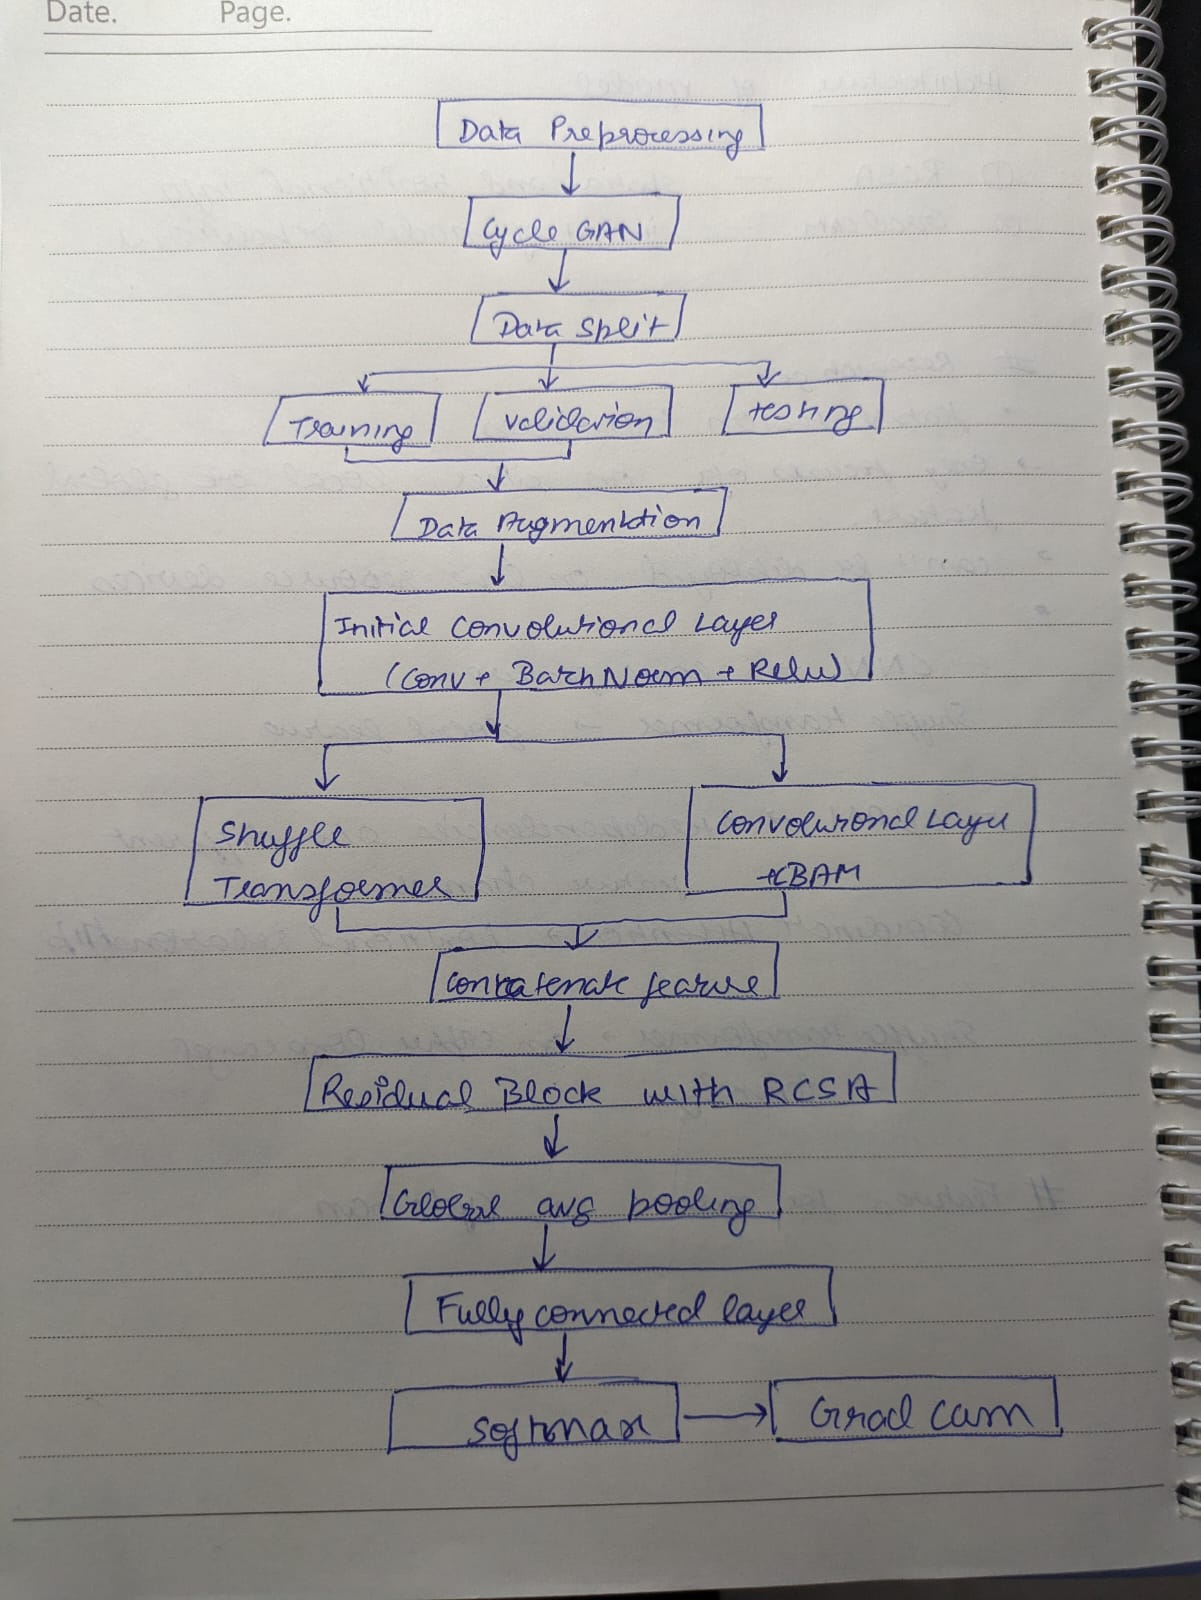 Date. Page.
Data Preprocessing
Cycle GAN
Data Split
Training validation testing
Data Augmentation
Initial Convolutional Layer
(Conv + BatchNorm + Relu)
Shuffle
Transformer
Convolutional Layer
+CBAM
Concatenate feature
Residual Block with RCSA
Global avg pooling
Fully connected layer
Softmax Grad cam